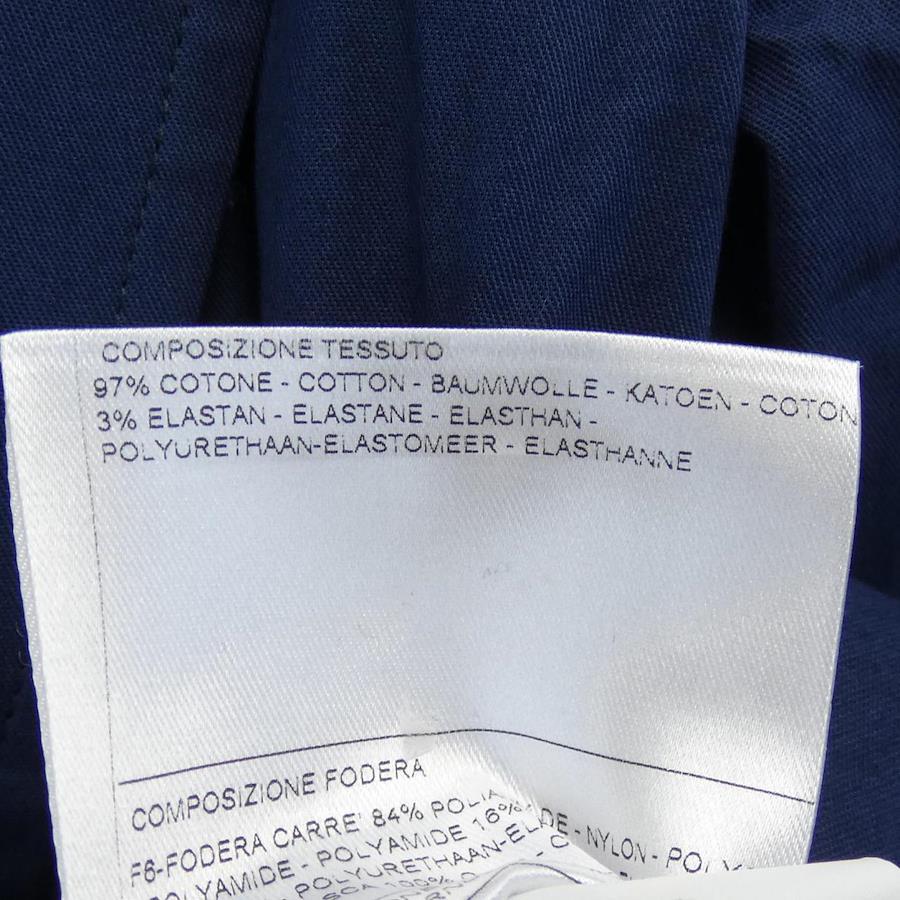 COMPOSIZIONE TESSUTO
97% COTONE - COTTON - BAUMWOLLE - KATOEN - COTON
3% ELASTAN - ELASTANE - ELASTHAN -
POLYURETHAAN-ELASTOMEER - ELASTHANNE
COMPOSIZIONE FODERA
F6-FODERA CARRE' 84% DE - NYLON -
POLYAMIDE - POLYAMIDE 16%
POLYURETHAAN-EL
100%